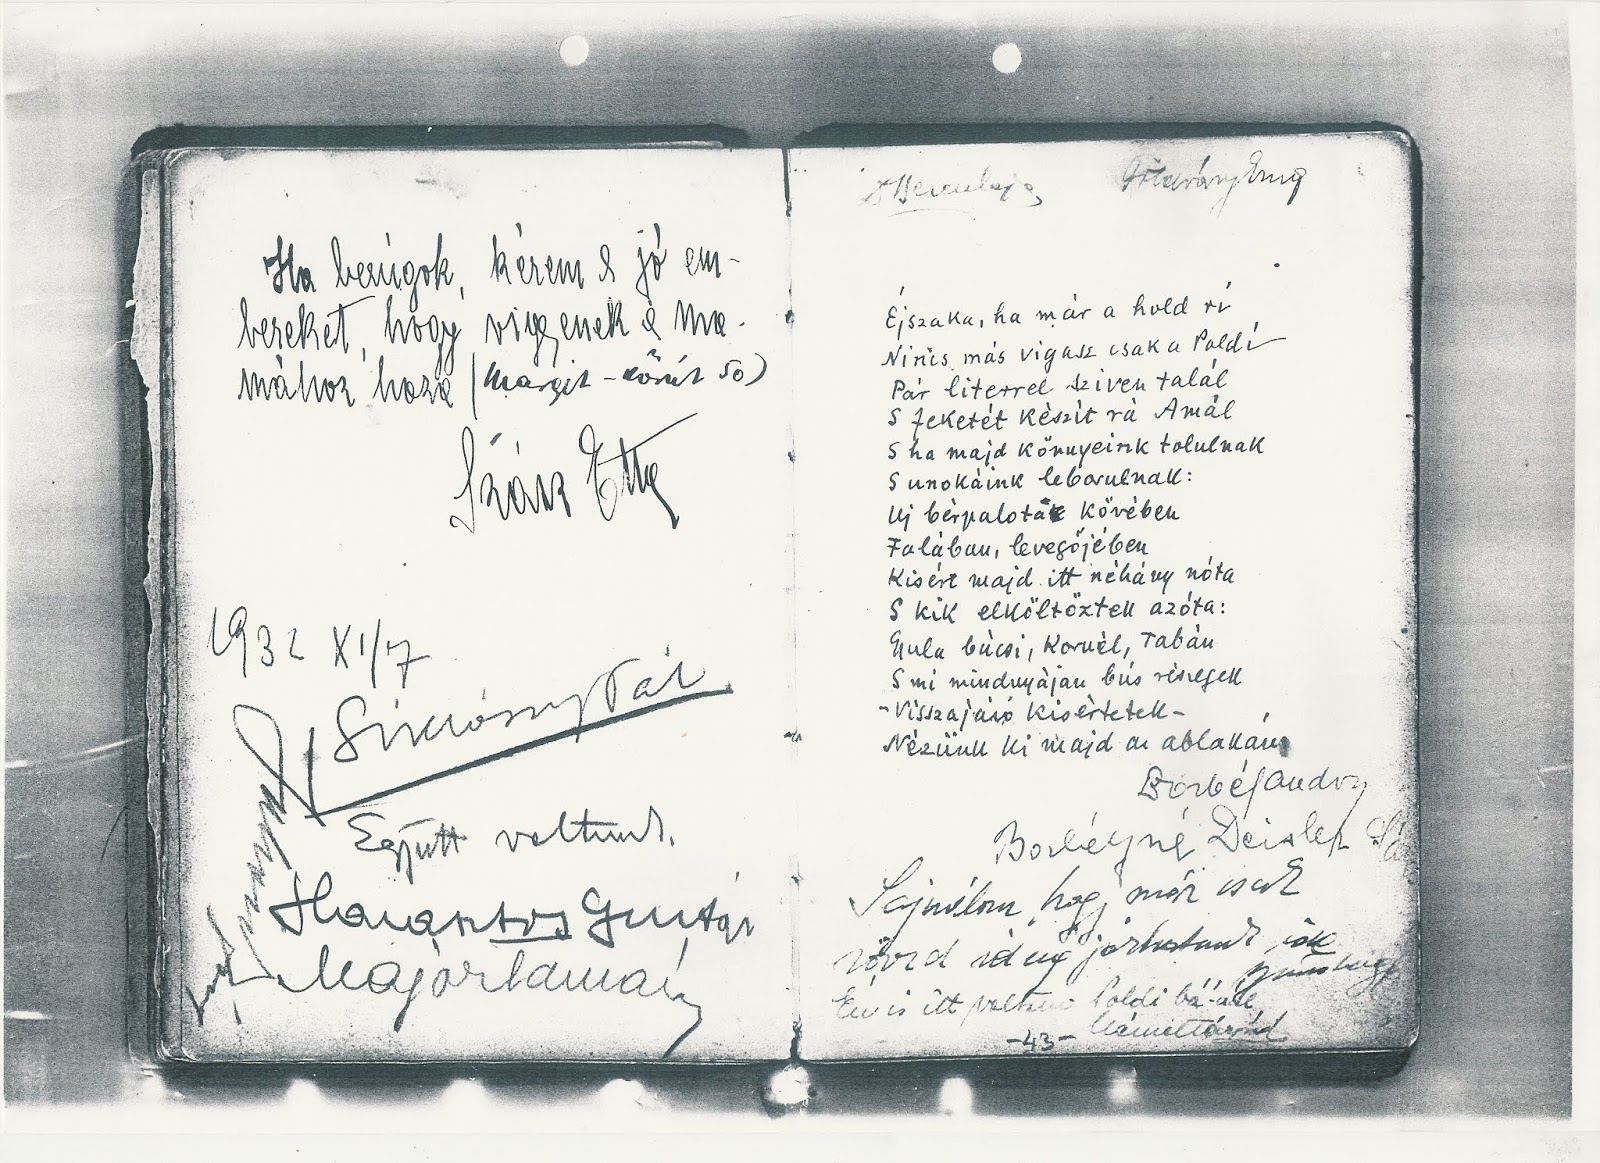 Ha berúgok, kérem a jó em-
bereket, hogy vigyenek a ma-
mához haza (Margit-körút 50)
Szász Ella
1932 XI/7
Siklóssy Pál
Együtt voltunk.
Harasztos Gusztáv
Major Tamás
Éjszaka, ha már a hold rí
Nincs más vigasz csak a Poldi
Pár literrel sziven talál
S feketét készít rá Amál
S ha majd könnyeink tolulnak
S unokáink leborulnak:
Uj bérpaloták kövében
Falában, levegőjében
Kisért majd itt néhány nóta
S kik elköltöztek azóta:
Gyula bácsi, Kornél, Tabán
S mi mindnyájan bús részegek
-Visszajáró kisértetek-
Nézünk ki majd az ablakán
Borbély Sándor
Borbélyné Deisler
Sajnálom, hogy már csak
rövid ideig járhatunk ide
Én is itt voltam Poldi bá-nál
-43-